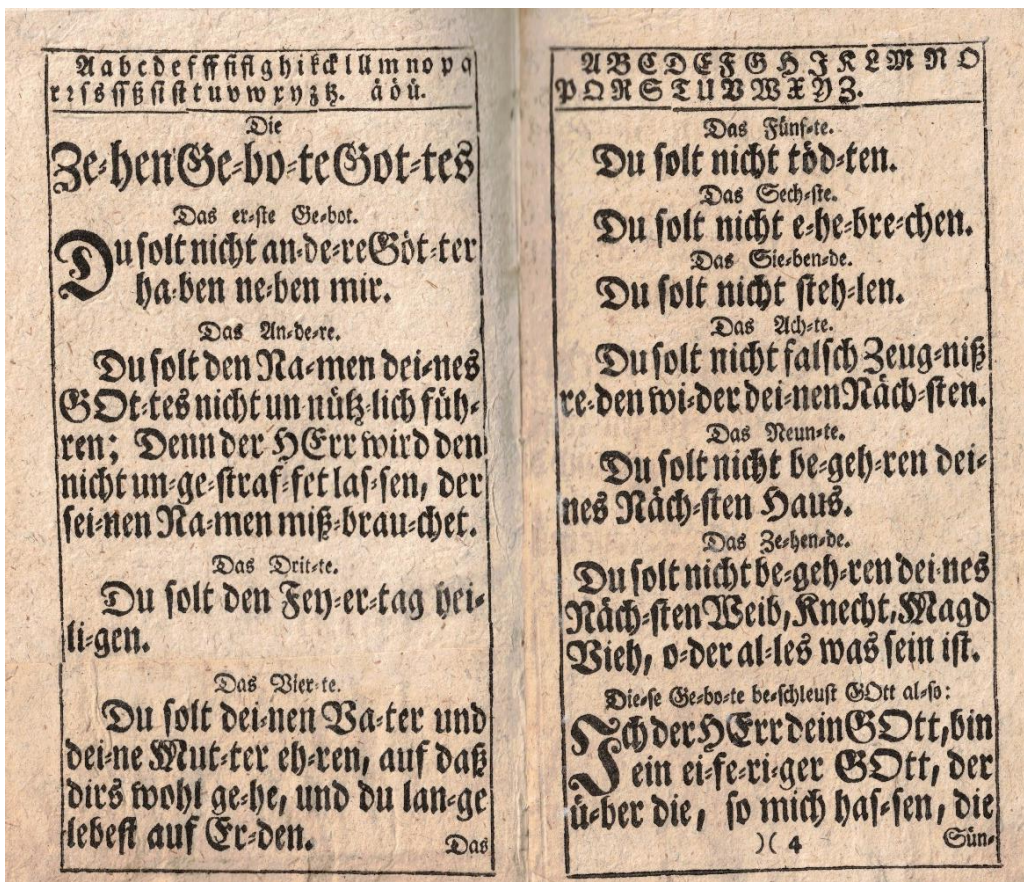 A a b c d e f ff fi fl g h i k ck l ll m n o p q
r ꝛ s ſ ſſ ß ſi ſt t u v w x y z tz. ä ö ü.
Die
Ze⸗hen Ge⸗bo⸗te Got⸗tes
Das er⸗ſte Ge⸗bot.
Du ſolt nicht an⸗de⸗re Göt⸗ter
ha⸗ben ne⸗ben mir.
Das An⸗de⸗re.
Du ſolt den Na⸗men dei⸗nes
GOt⸗tes nicht un⸗nütz⸗lich füh⸗
ren; Denn der HErr wird den
nicht un⸗ge⸗ſtraf⸗fet laſ⸗ſen, der
ſei⸗nen Na⸗men miß⸗brau⸗chet.
Das Drit⸗te.
Du ſolt den Fey⸗er⸗tag hei⸗
li⸗gen.
Das Vier⸗te.
Du ſolt dei⸗nen Va⸗ter und
dei⸗ne Mut⸗ter eh⸗ren, auf daß
dirs wohl ge⸗he, und du lan⸗ge
lebeſt auf Er⸗den.
Das
A B C D E F G H J K L M N O
P Q R S T U V W X Y Z.
Das Fünf⸗te.
Du ſolt nicht töd⸗ten.
Das Sech⸗ſte.
Du ſolt nicht e⸗he⸗bre⸗chen.
Das Sie⸗ben⸗de.
Du ſolt nicht ſteh⸗len.
Das Ach⸗te.
Du ſolt nicht falſch Zeug⸗niß
re⸗den wi⸗der dei⸗nen Näch⸗ſten.
Das Neun⸗te.
Du ſolt nicht be⸗geh⸗ren dei⸗
nes Näch⸗ſten Haus.
Das Ze⸗hen⸗de.
Du ſolt nicht be⸗geh⸗ren dei⸗nes
Näch⸗ſten Weib, Knecht, Magd
Vieh, o⸗der al⸗les was ſein iſt.
Die⸗ſe Ge⸗bo⸗te be⸗ſchleuſt GOtt al⸗ſo:
Jch der HErr dein GOtt, bin
ein ei⸗fe⸗ri⸗ger GOtt, der
ü⸗ber die, ſo mich haſ⸗ſen, die
)( 4
Sün⸗